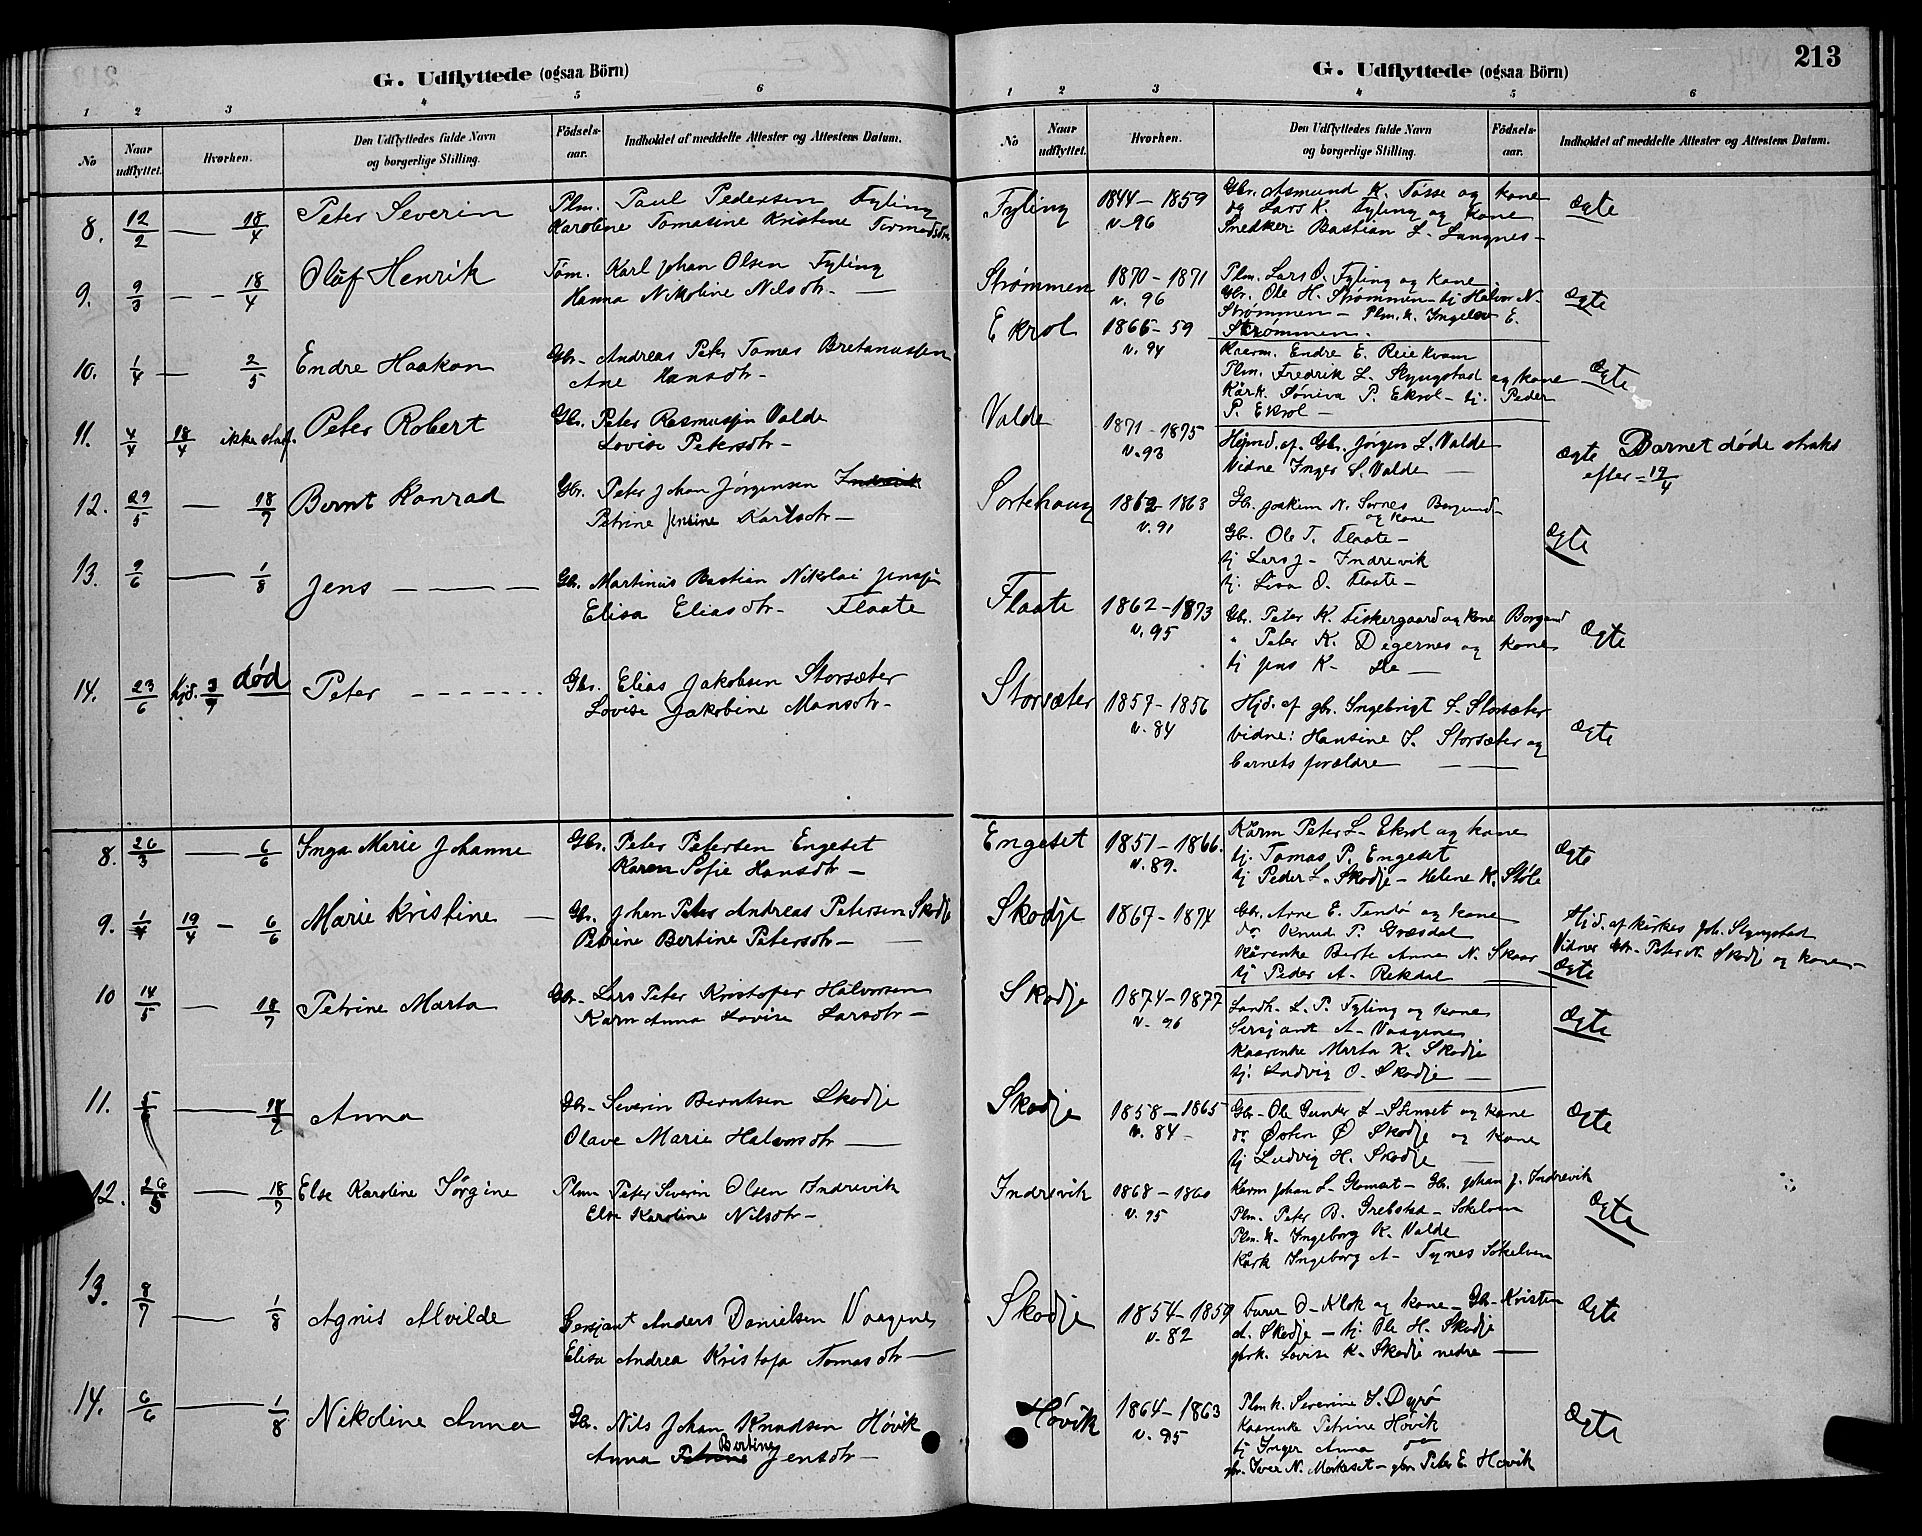 G. Udflyttede (ogsaa Börn)
1 2 3 4 5 6
No Naar udflyttet. Hvorhen. Den Udflyttedes fulde Navn og borgerlige Stilling. Födsels-aar. Indholdet af meddelte Attester og Attestens Datum.
8. 12/2 — 18/4 Peter Severin Plm. Paul Pedersen Fyling
Karoline Tomasine Kristine
9. 9/3 — 18/4 Oluf Henrik Tøm. Karl Johan Olsen Fyling
Hanna Nikoline Nilsdtr. —
10. 1/4 — 2/5 Endre Haakon Gbr. Andreas Peter Tomas Bretanussen
Ane Hansdtr.
11. 4/4 18/4 ikke stadf. Peter Robert Gbr. Peter Rasmussen Valde
Lovise Petersdtr. —
12. 29/5 — 18/7 Bernt Konrad Gbr. Peter Johan Jørgensen Indrevik
Petrine Jensine Karlsdtr —
13. 9/6 — 1/8 Jens — Gbr. Martinus Bastian Nikolai Jenssen
Elisa Eliasdtr. Flaate
14. 23/6 Hjd. 3/7 død Peter Gbr. Elias Jakobsen Storsæter
Lovise Jakobine Monsdtr.
8. 26/3 — 6/6 Inga Marie Johanne Gbr. Peter Petersen Engeset
Karen Sofie Hansdtr —
9. 1/4 19/4 — 6/6 Marie Kristine — Gbr. Johan Peter Andreas Petersen Skodje
Petrine Bertine Petersdtr. —
10 14/5 — 18/7 Petrine Marta Gbr. Lars Peter Kristofer Halvorsen
Karen Anna Lovise Larsdtr —
11. — 18/7 Anna Gbr. Severin Berntsen Skodje
Olave Marie Halvorsdtr —
12. 26/5 — 18/7 Else Karoline Jørgine Plm Peter Severin Olsen Indrevik
Else Karoline Nilsdtr —
13. 8/7 — 1/8 Agnis Alvilde Sersjant Anders Danielsen Vaagenes
Elisa Andrea Kristofa Tomasdtr —
14. 6/6 — 1/8 Nikoline Anna Gbr. Nils Johan Knudsen Høvik
Bertine
Anna Petrine Jensdtr —
213
G. Udflyttede (ogsaa Börn)
1 2 3 4 5 6
No Naar udflyttet. Hvorhen. Den Udflyttedes fulde Navn og borgerlige Stilling. Födsels-aar. Indholdet af meddelte Attester og Attestens Datum.
Fyling 1844 – 1859 Gbr. Asmund K. Tøsse og kone Ægte
v. 96 og Lars K. Fyling og kone
Snedker Bastian L. Langnes –
Strømmen 1870 – 1871 Plm. Lars O. Fyling og kone
v. 96 Gbr. Ole H. Strømmen – tj. Halvor N. Ægte
Strømmen – Plm. k. Ingelev E.
Ekrol 1866 – 59 Strømmen.
v. 94 Endre E. Reiekvam
Plm. Fredrik L. Styngstad og kone Ægte
Kårk. Søniva P. Ekrol – tj. Peder
P. Ekrol –
Valde 1871 – 1875 Hjmd. af Gbr. Jørgen L. Valde Ægte Barnet døde straks
v. 93 Vidne Inger S. Valde — efter 19/4
Sortehaug 1862 – 1863 Gb. Joakim N. Sornes Borgund
v. 91 og kone
Gbr. Ole T. Flaate – Ægte
tj Lars J. Indrevik
tj. Lisa O. Flaate –
Flaate 1862 – 1873 Gbr. Peter K. Fiskergaard og kone Borgund
v. 95 " Peter K. Degernes og kone Ægte
tj Jens K. De —
Storsæter 1857 – 1856 Hjd. af gbr. Ingebrigt S. Storsæter
v. 84 Vidne: Hansine S. Storsæter og Ægte
barnets forældre —
Engeset 1851 – 1866. Kårm Peter L. Ekrol og kone
v. 89. tj. Tomas P. Engeset Ægte
tj Peder L. Skodje – Helene K. Støle
Skodje 1867 – 1874 Gbr. Arne E. Tendø og kone Hjd. af kirkes. Joh. Styngstad
do Knud P. Græsdal Vidner Gbr. Peter N. Skodje og kone –
Kårenke Berte Anna N. Skaar Ægte
tj Peder A. Rekdal —
Skodje 1874 – 1877 Landh. L. P. Fyling og kone
v. 96 Sersjant A. Vaagenes Ægte
Kaarenke Marta K. Skodje
tj. Ludvig O. Skodje —
Skodje 1858 – 1865 Gbr. Ole Gunder L. Stenset og kone Ægte
v. 84 – do Østen Ø Skodje og kone
tj Ludvig H. Skodje —
Indrevik 1868 – 1860 Johan L. – Gb. Johan J. Indrevik
v. 95 Plm. Peter B. Grebstad – Søkelven Ægte
Plm. k. Ingeborg K. Valde
Kårk Ingeborg A. Tynes Søkelven
Skodje 1854 – 1859 O. Klok og kone – Gb. Kristen Ægte
v. 82 A. Skodje – tj. Ole H. Skodje
gbrk. Lovise K. Skodje nedre —
Høvik 1864 – 1863 Plm k. Severine S. Dyrø
v. 95 Kaarenke Petrine Høvik Ægte
tj Inger Anna do
gbr. Iver N. Mørkeset – gbr. Peter E. Høvik